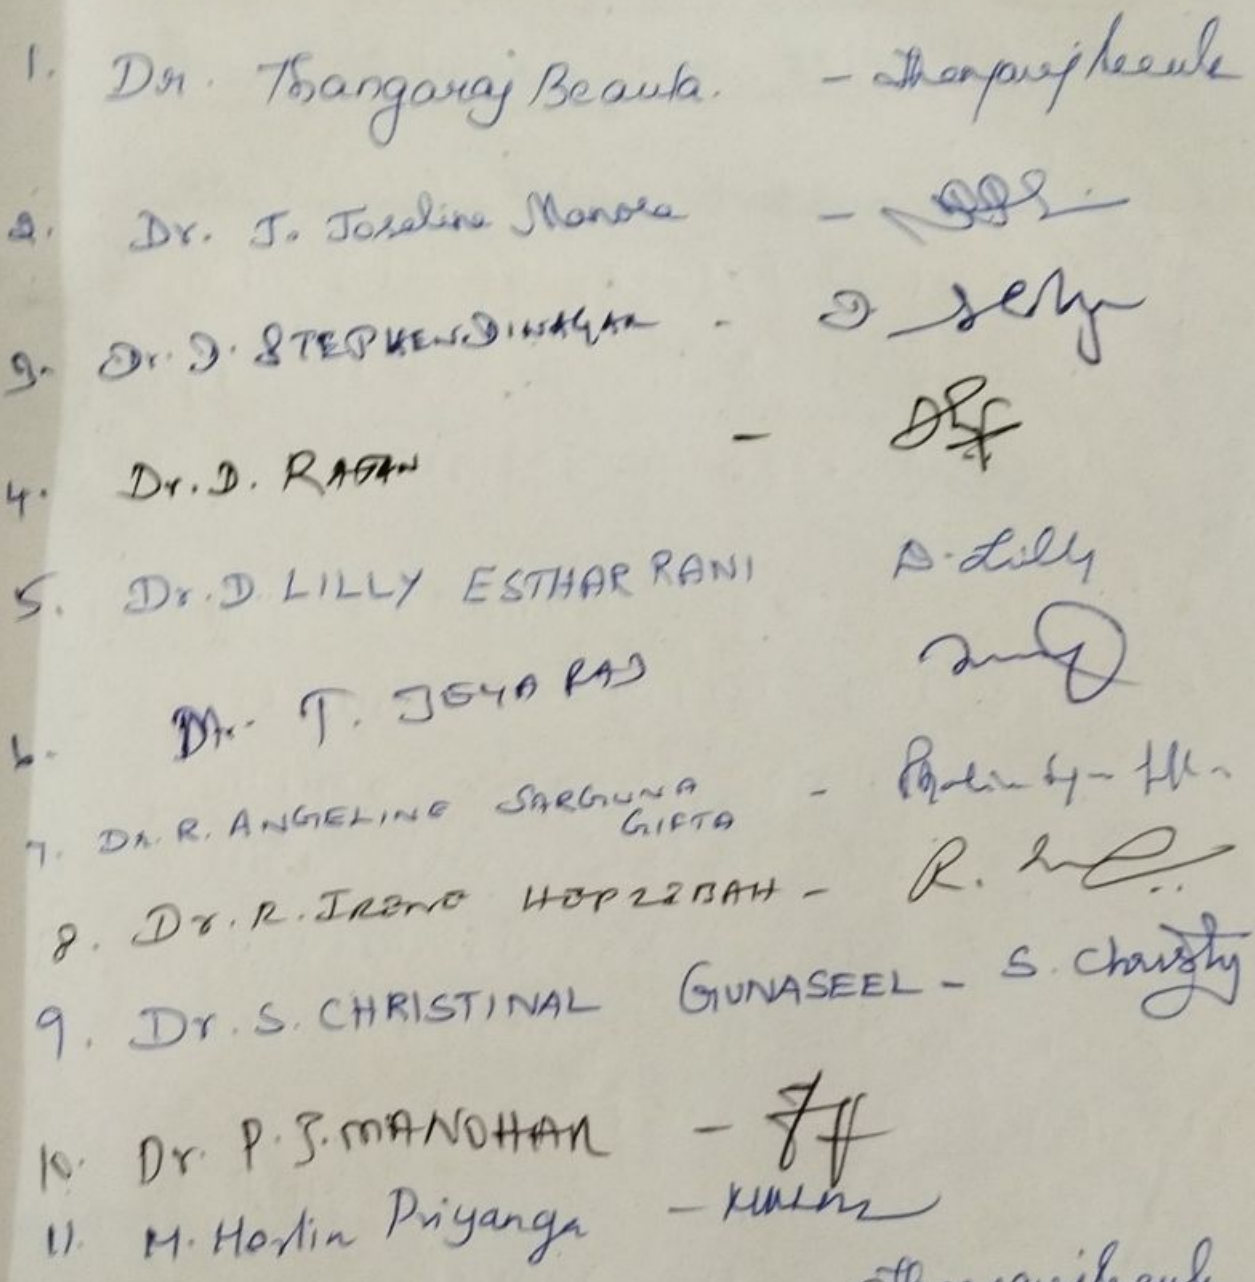 1. Dr. Thangaraj Beaula. - Thangaraj beaula
2. Dr. J. Joseline Manora -
3. Dr. D. STEPHEN DINAGAR - D
4. Dr. D. RAJAN -
5. Dr. D LILLY ESTHAR RANI D. Lilly
6. Dr. T. JEYA RAJ
7. DR. R. ANGELINE SARGUNA -
GIFTA
8. Dr. R. IRENE HEPZIBAH - R.
9. Dr. S. CHRISTINAL GUNASEEL - S. Christy
10. Dr. P. J. MANOHAR -
11. M. Horlin Priyanga -